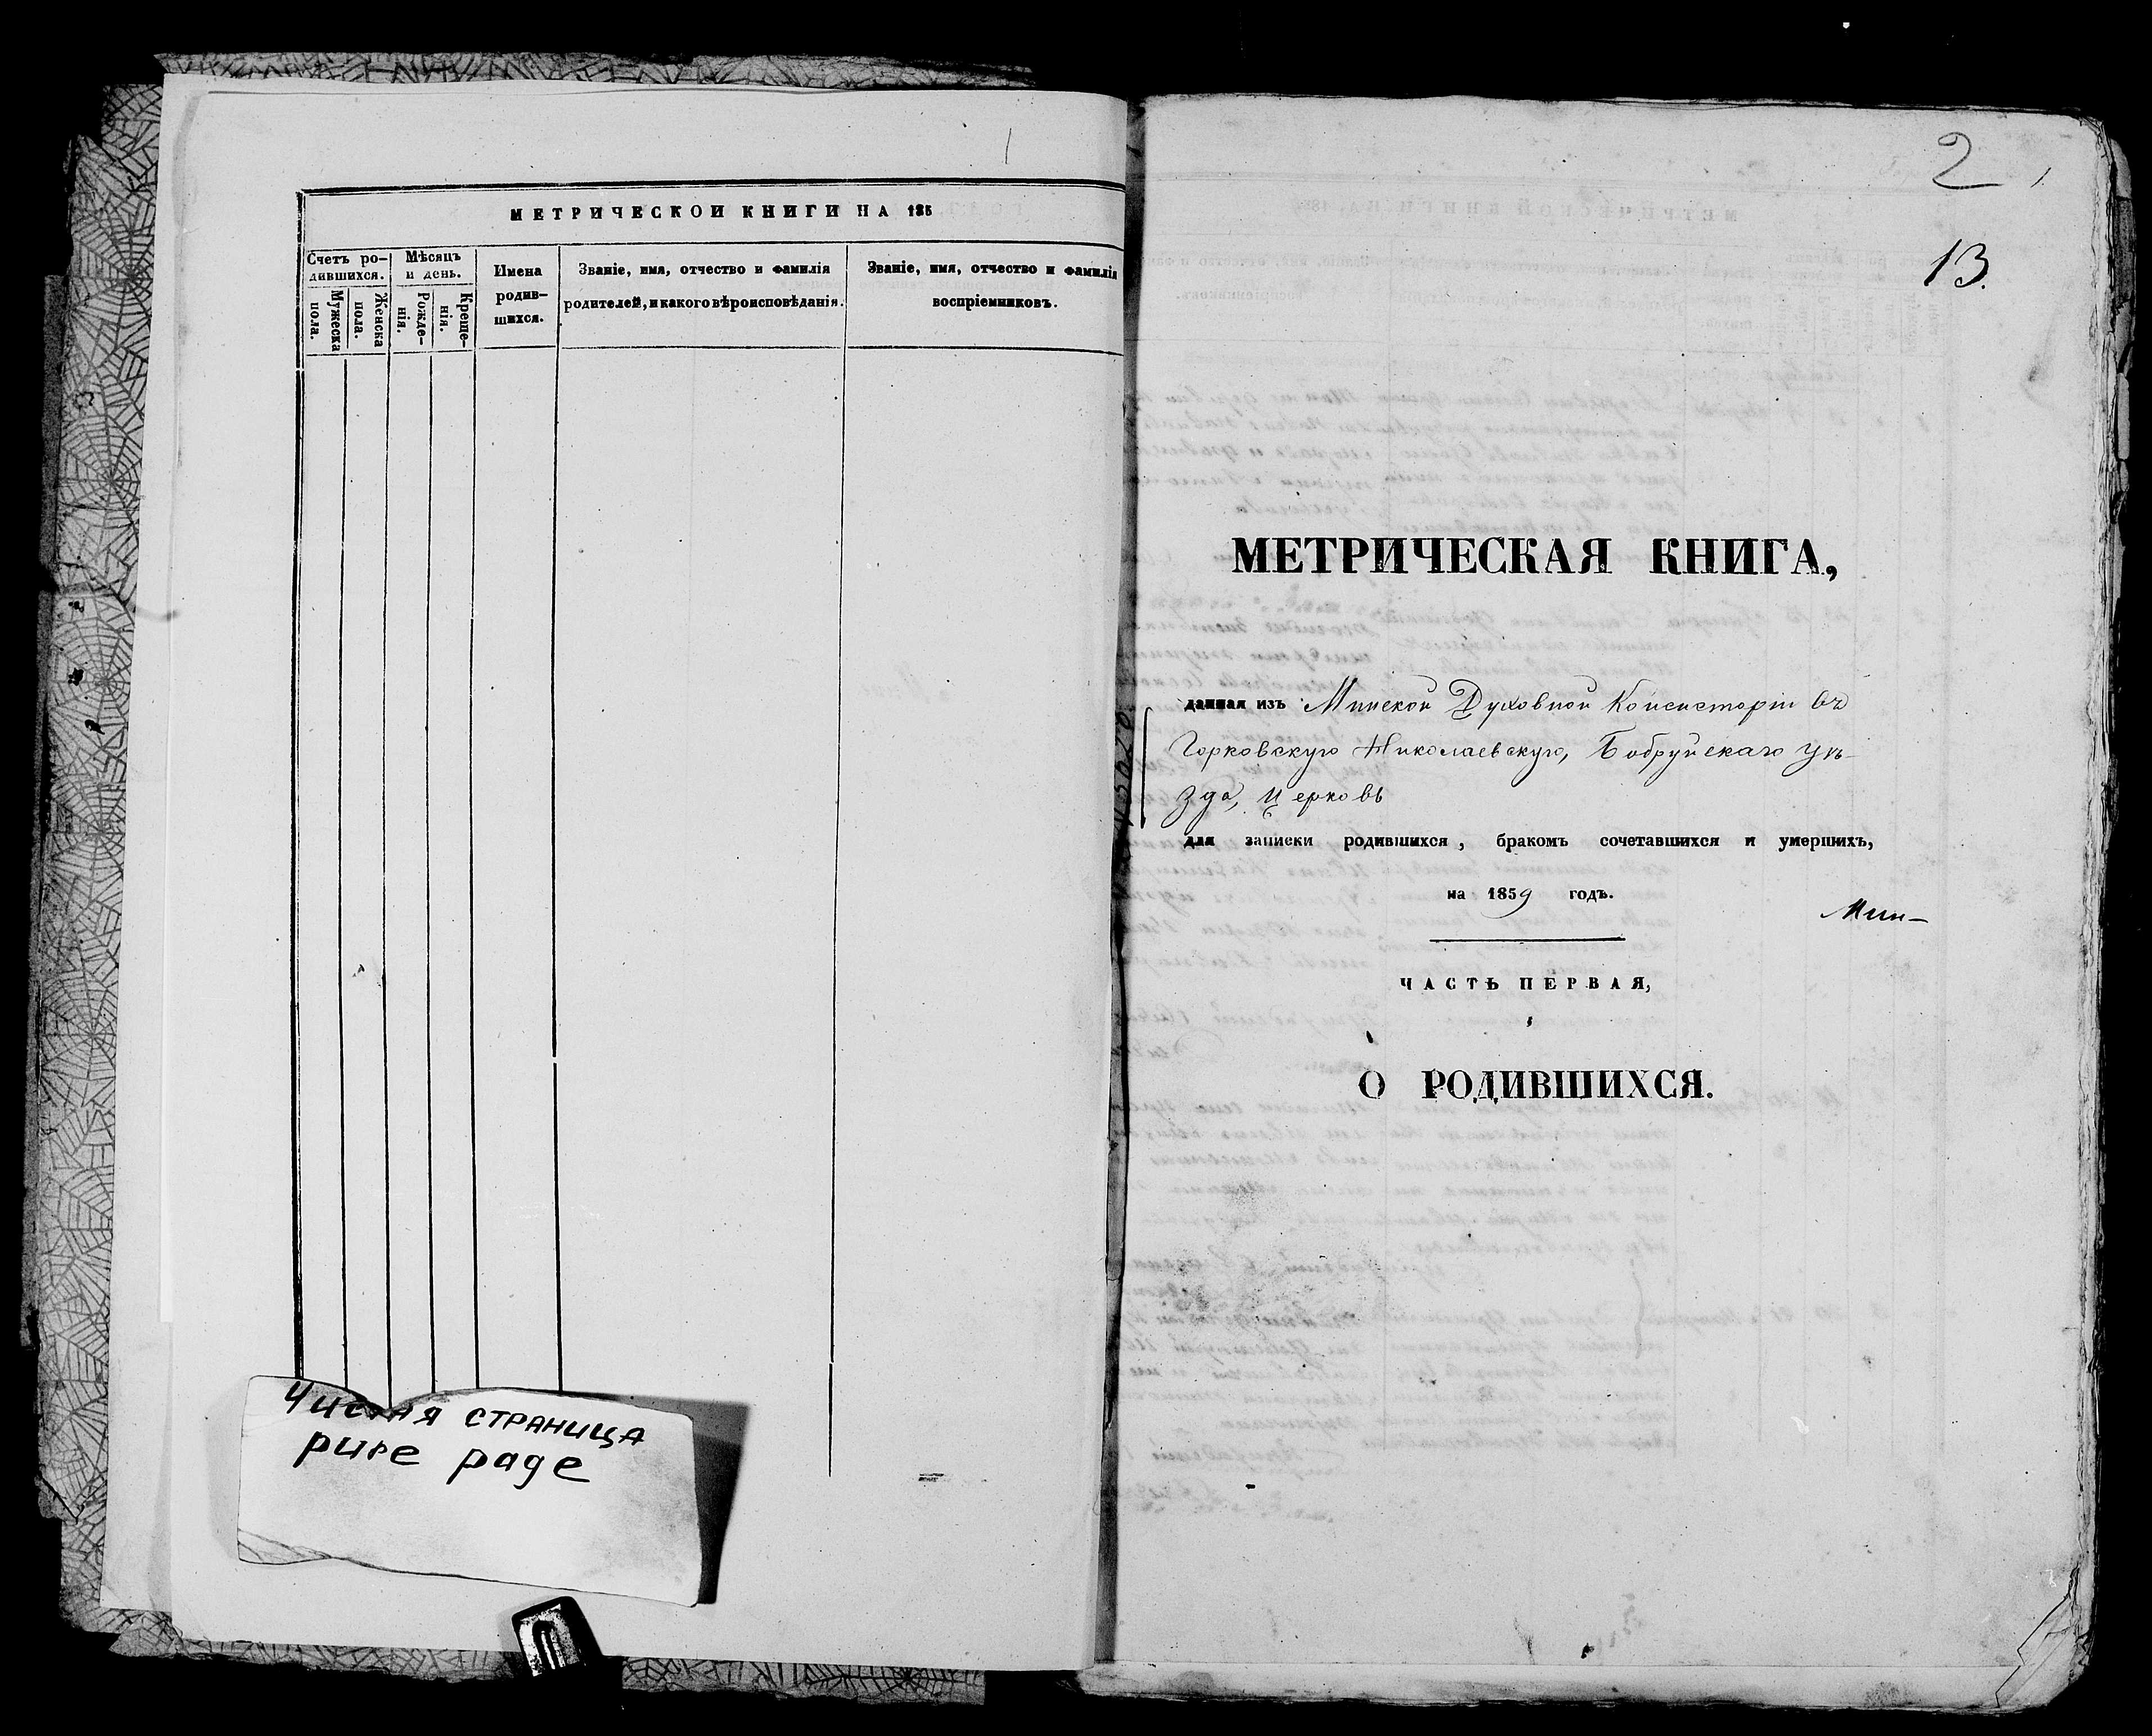 МЕТРИЧЕСКОЙ КНИГИ НА 185
Счетъ ро-
дившихся.
Мужеска
пола.
Женска
пола.
Мѣсяцъ
и день.
Рожде-
нія.
Креще-
нія.
Имена
родив-
шихся.
Званіе, имя, отчество и фамилія
родителей, и какого вѣроисповѣданія.
Званіе, имя, отчество и фамилія
воспріемниковъ.
Чистая страница
pure page
2
13.
МЕТРИЧЕСКАЯ КНИГА,
данная изъ Минской Духовной Консисторіи въ
Горковскую Николаевскую, Бобруйскаго уѣ-
зда, церковь
для записки родившихся, бракомъ сочетавшихся и умершихъ,
на 1859 годъ.
Мин-
ЧАСТЬ ПЕРВАЯ,
О РОДИВШИХСЯ.